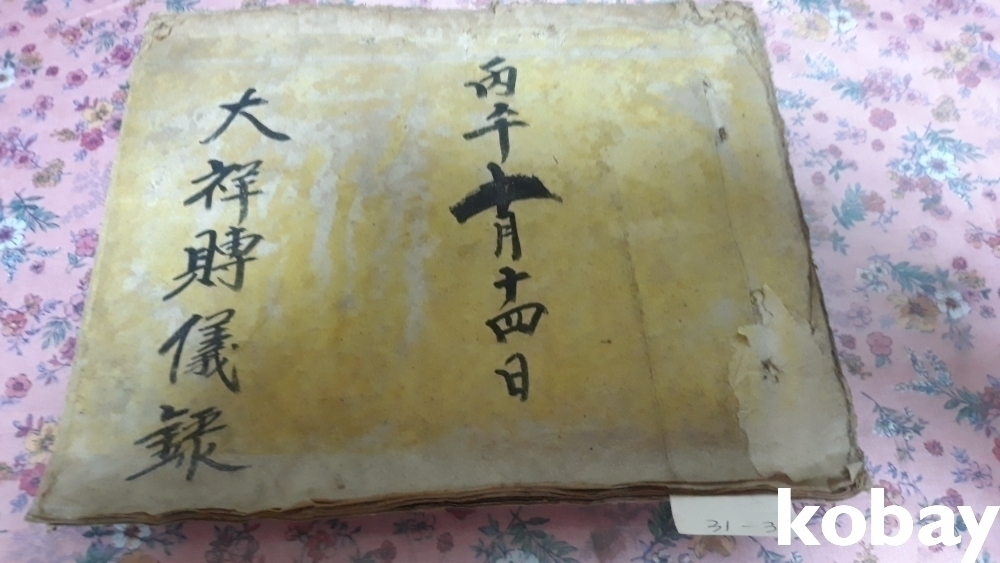 丙午十月十四日
大祥賻儀錄
31-3
kobay